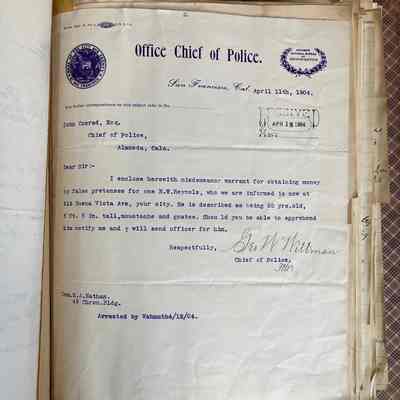 Office Chief of Police.
San Francisco, Cal. April 11th, 1904.
APR 12 1904
John Conrad, Esq.
Chief of Police,
Alameda, Cala.
Dear Sir:-
I enclose herewith misdemeanor warrant for obtaining money
by false pretenses for one H.W.Reynols, who we are informed is now at
Buena Vista Ave, your city. He is described as being 50 yrs.old,
5 ft. 8 in. tall,moustache and goatee. Should you be able to apprehend
him notify me and I will send officer for him.
Respectfully,
Geo W Wittman
Chief of Police,
Com.M.A.Nathan.
49 Chron.Bldg.
Arrested by Wahmuth4/12/04.